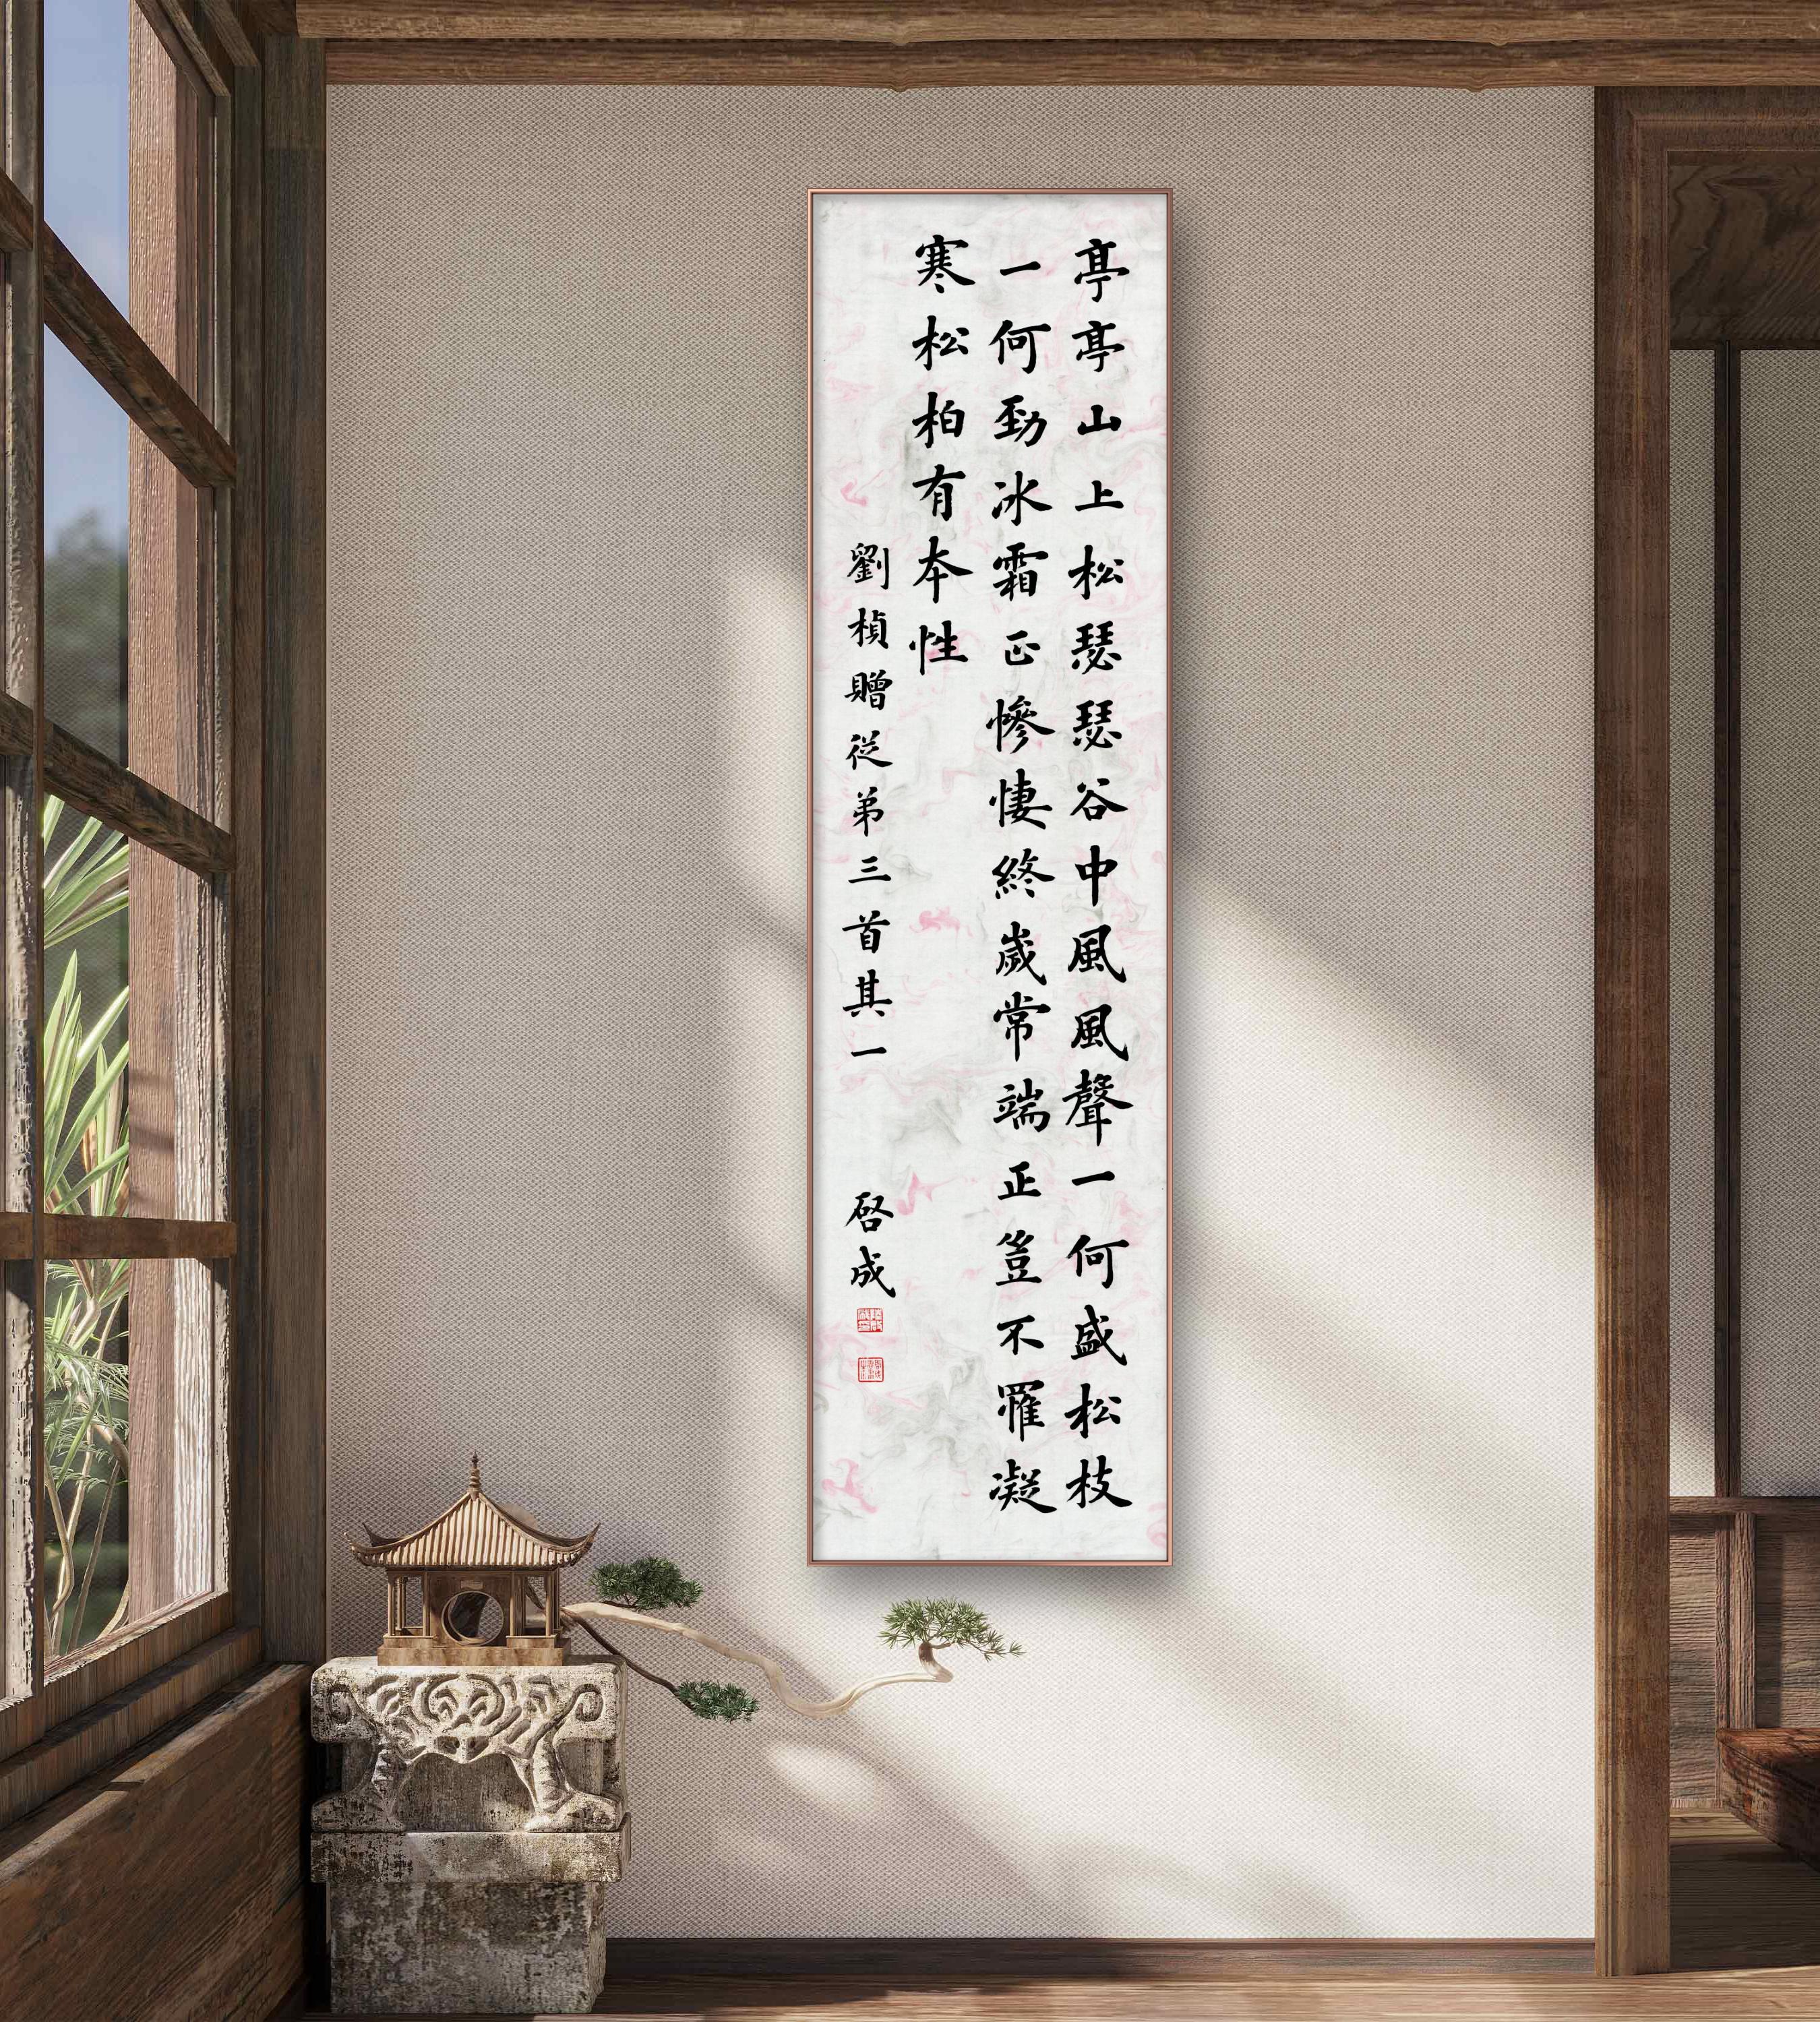 亭亭山上松瑟瑟谷中風風聲一何盛松枝
一何勁冰霜正慘悽終歲常端正豈不罹凝
寒松柏有本性
劉楨贈從弟三首其一 啓成